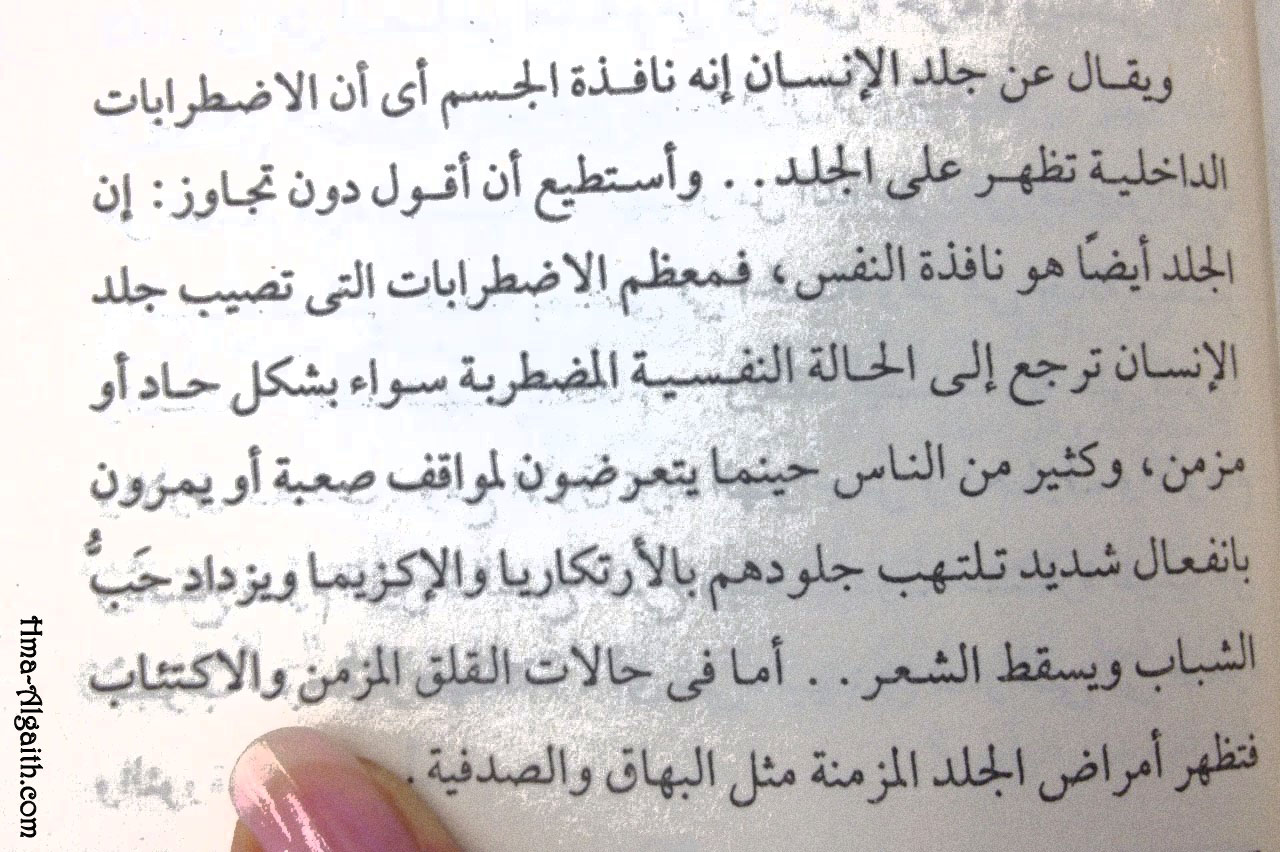 ويقال عن جلد الإنسان إنه نافذة الجسم أى أن الاضطرابات
الداخلية تظهر على الجلد . . وأستطيع أن أقول دون تجاوز : إن
الجلد أيضًا هو نافذة النفس ، فمعظم الاضطرابات التى تصيب جلد
الإنسان ترجع إلى الحالة النفسية المضطربة سواء بشكل حاد أو
مزمن ، وكثير من الناس حينما يتعرضون لمواقف صعبة أو يمرون
بانفعال شديد تلتهب جلودهم بالأرتكاريا والإكزيما ويزداد حَبُّ
الشباب ويسقط الشعر . . أما فى حالات القلق المزمن والاكتئاب
فتظهر أمراض الجلد المزمنة مثل البهاق والصدفية .
Hma-Algaith.com